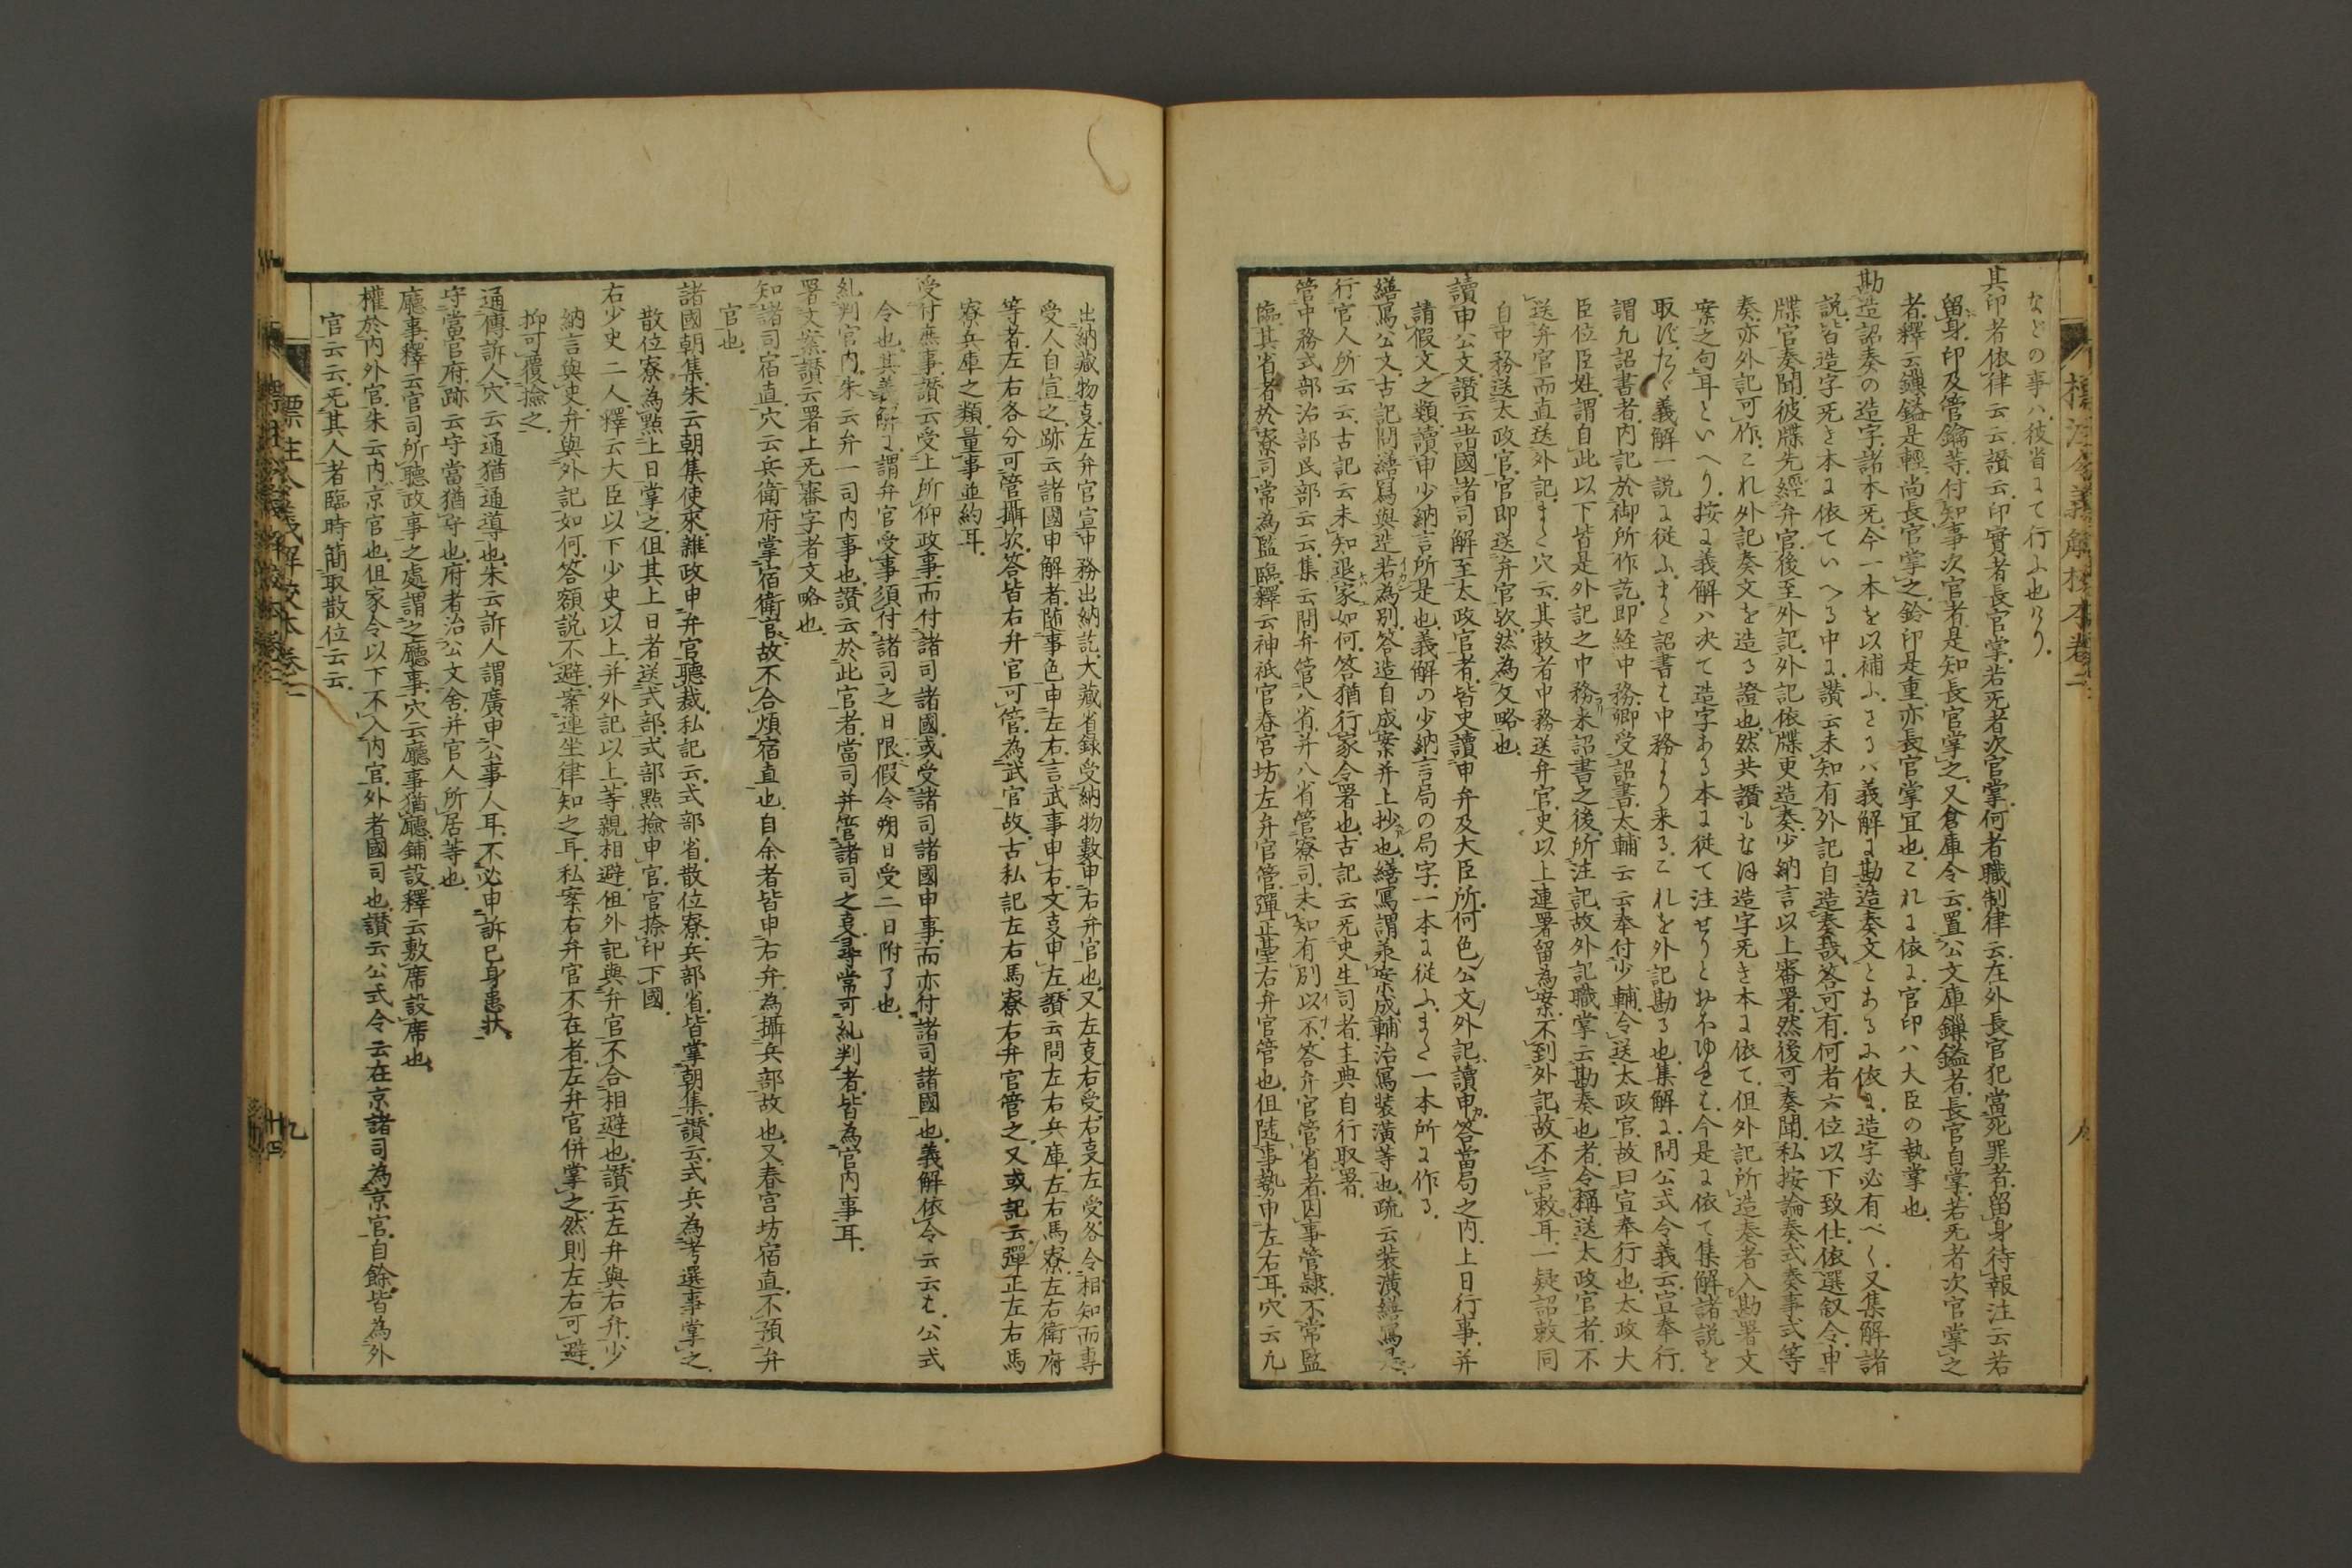 標注令義解校本卷二
などの事ハ彼省にて行ふ也けり
其印者依律云云讃云印實者長官掌若无者次官掌何者職制律云在外長官犯當死罪者留身待報注云若
留身印及管鑰等付知事次官者是知長官掌之又倉庫令云置公文庫鏁鎰者長官自掌若无者次官掌之
者釋云鏁鎰是輕尚長官掌之鈴印是重亦長官掌宜也これに依に官印ハ大臣の執掌也
勘造詔奏の造字諸本无今一本を以補ふさるハ義解に勘造奏文とあるに依に造字必有べく又集解諸
説皆造字无き本に依ていへる中に讃云未知有外記自造奏哉答可有何者六位以下致仕依選叙令申
牒官奏聞彼牒先經弁官後至外記外記依牒更造奏少納言以上審署然後可奏聞私按論奏式奏事式等
奏亦外記可作これ外記奏文を造る證也然共讃もなほ造字无き本に依て但外記所造奏者入勘署文
案之句耳といへり按に義解ハ决て造字ある本に従て注せりとおぼゆれも今是に依て集解諸説を
取ずたゞ義解一説に従ふまた詔書も中務より来るこれを外記勘る也集解に問公式令義云宜奉行
謂凡詔書者内記於御所作訖即経中務卿受詔書大輔云云奉付少輔令送太政官故曰宣奉行也太政大
臣位臣姓謂自此以下皆是外記之中務来詔書之後所注記故外記職掌云勘奏也者令稱送太政官者不
送弁官而直送外記また穴云其敕者中務送弁官史以上連署留為案不到外記故不言敕耳一疑詔敕同
自中務送太政官官即送弁官欤然為文略也
讀申公文讃云諸國諸司解至太政官者皆史讀申弁及大臣所何色公文外記讀申答當局之内上日行事并
請假文之類讀申少納言所是也義解の少納言局の局字一本に従ふまた一本所に作る
繕寫公文古記問繕寫與造若為別答造自成案并上抄也繕寫謂兼案成輔治寫装潢等也疏云装潢繕寫是
行官人所云云古記云未知退家如何答猶行家令署也古記云无史生司者主典自行取署
管中務式部治部民部云云集云問弁管八省并八省管寮司未知有別以不答弁官管省者因事管隷不常監
臨其省者於寮司常為監臨釋云神祇官春官坊左弁官管彈正臺右弁官管也但随事勢申左右耳穴云凡
出納藏物支左弁官宣中務出納訖大藏省録受納物數申右弁官也又左支右受右支左受各令相知而專
受人自宣之跡云諸國申解者随事色申左右言武事申右文支申左讃云問左右兵庫左右馬寮左右衛府
等者左右各分可管攝欤答皆右弁官可管為武官故古私記左右馬寮右弁官管之又或記云彈正左右馬
寮兵庫之類量事並約耳
受付庶事讃云受上所仰政事而付諸司諸國或受諸司諸國申事而亦付諸司諸國也義解依令云云も公式
令也其義解に謂弁官受事須付諸司之日限假令朔日受二日附了也
糺判官内朱云弁一司内事也讃云於此官者當司并管諸司之支尋常可糺判者皆為官内事耳
署文案讃云署上无審字者文略也
知諸司宿直穴云兵衛府掌宿衛官故不合煩宿直也自余者皆申右弁為攝兵部故也又春宮坊宿直不預弁
官也
諸國朝集朱云朝集使來雜政申弁官聽裁私記云式部省散位寮兵部省皆掌朝集讃云式兵為考選事掌之
散位寮為點上日掌之但其上日者送式部式部點撿申官官捺印下國
右少史二人釋云大臣以下少史以上并外記以上等親相避但外記與弁官不合相避也讃云左弁與右弁少
納言與史弁與外記如何答額説不避案連坐律知之耳私案右弁官不在者左弁官併掌之然則左右可避
抑可覆撿之
通傳訴人穴云通猶通導也朱云訴人謂廣申公事人耳不必申訴己身患状
守當官府跡云守當猶守也府者治公文舎并官人所居等也
廳事釋云官司所聽政事之處謂之廳事穴云廳事猶廳鋪設釋云敷席設席也
權於内外官朱云内京官也但家令以下不入内官外者國司也讃云公式令云在京諸司為京官自餘皆為外
官云云无其人者臨時簡取散位云云
標注令義解校本卷二
九